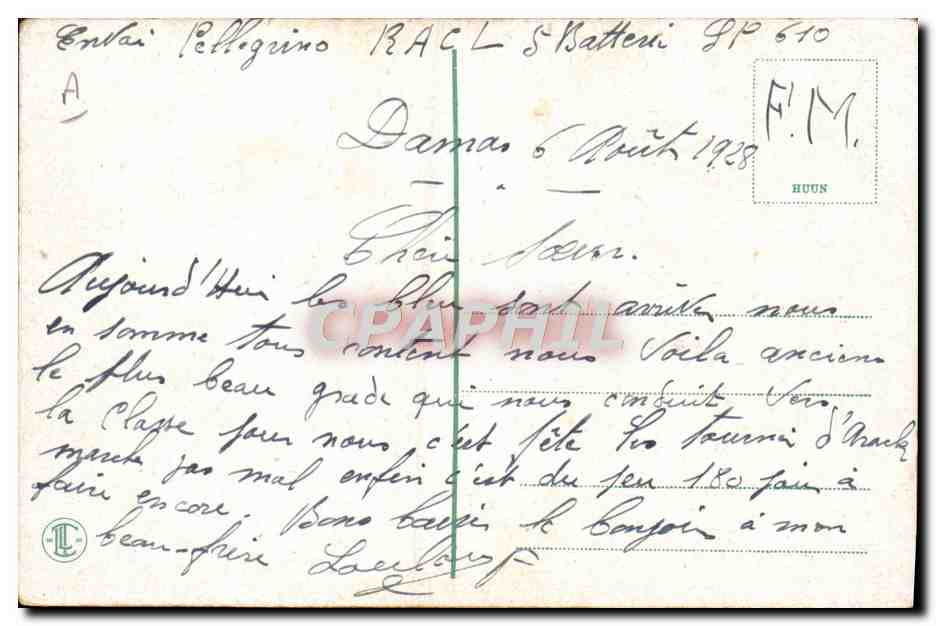 Envoi Pellegrino RACL 5 Batterie SP 610
A
F.M.
HUUN
Damas 6 Août 1928
Chère Sœur.
Aujourd'Hui les bleu sont arrivés nous
en somme tous content nous voila anciens
le plus beau grade qui nous conduit vers
la Classe pour nous c'est fête les tournée d'Arack
marche pas mal enfin c'est du peu 180 jour à
faire encore. Bons baisés le bonjoir à mon
beau-frère
CPAPHIL